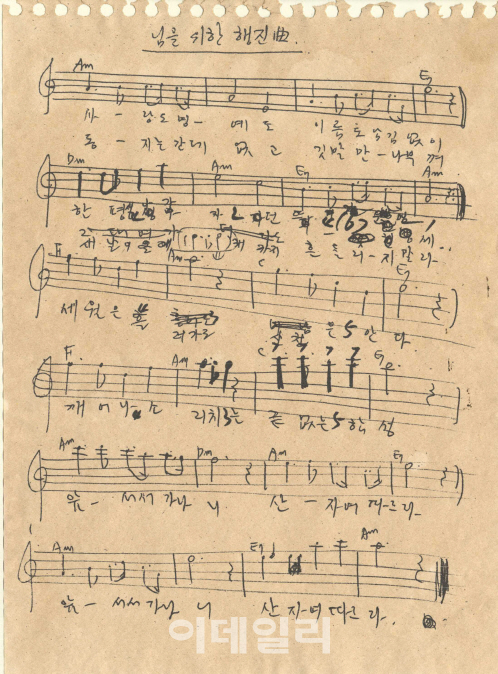 님을 위한 행진曲.
Am E7
사 - 랑도 명 - 예 도 이름도 남김 없 이
동 - 지는 간데 없 고 깃발 만 - 나부 껴
Dm Am E7 Am
한 평생 맹 세
새 날이 올 때 까지 흔 들리 - 지 말라
F Am C E7
세 월은 흘 러가도
은 안 다
F Am C G7
깨 어나 소 리치는 끝 없는 함 성
Am Dm Am E7
앞 - 서서 가나 니 산 - 자여 따르라
Am E7 Am
앞 - 서서 가나 니 산 자여 따르 라.
이데일리